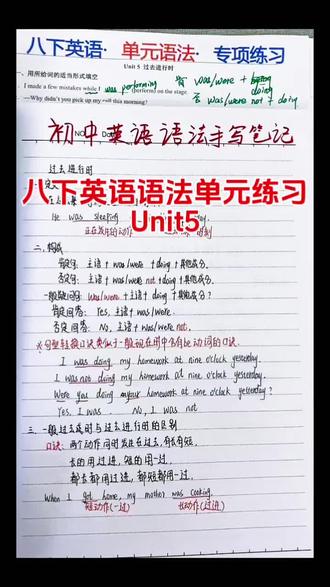 八下英语·单元语法·专项练习
Unit 5 过去进行时
一、用所给词的适当形式填空
I made a few mistakes while I was performing (perform) on the stage.
肯 was/were + doing
否 was/were not + doing
—Why didn't you pick up my call this morning?
初中英语语法手写笔记
过去进行时
八下英语语法单元练习
Unit5
He was sleeping
正在发生的动作
二、构成
肯定句：主语 + was/were + doing + 其他成分.
否定句：主语 + was/were not + doing + 其他成分.
一般疑问句：Was/were + 主语 + doing + 其他成分？
肯定回答：Yes, 主语 + was/were.
否定回答：No, 主语 + was/were not.
I was doing my homework at nine o'clock yesterday.
I was not doing my homework at nine o'clock yesterday.
Were you doing your homework at nine o'clock yesterday?
Yes, I was . No, I was not
三、一般过去时与过去进行时的区别
口诀：两个动作同时发生在过去，有长有短，
长的用过进，短的用一过，
都长都用过进，都短都用一过.
When I got home, my mother was cooking.
短动作(一过) 长动作(过进)